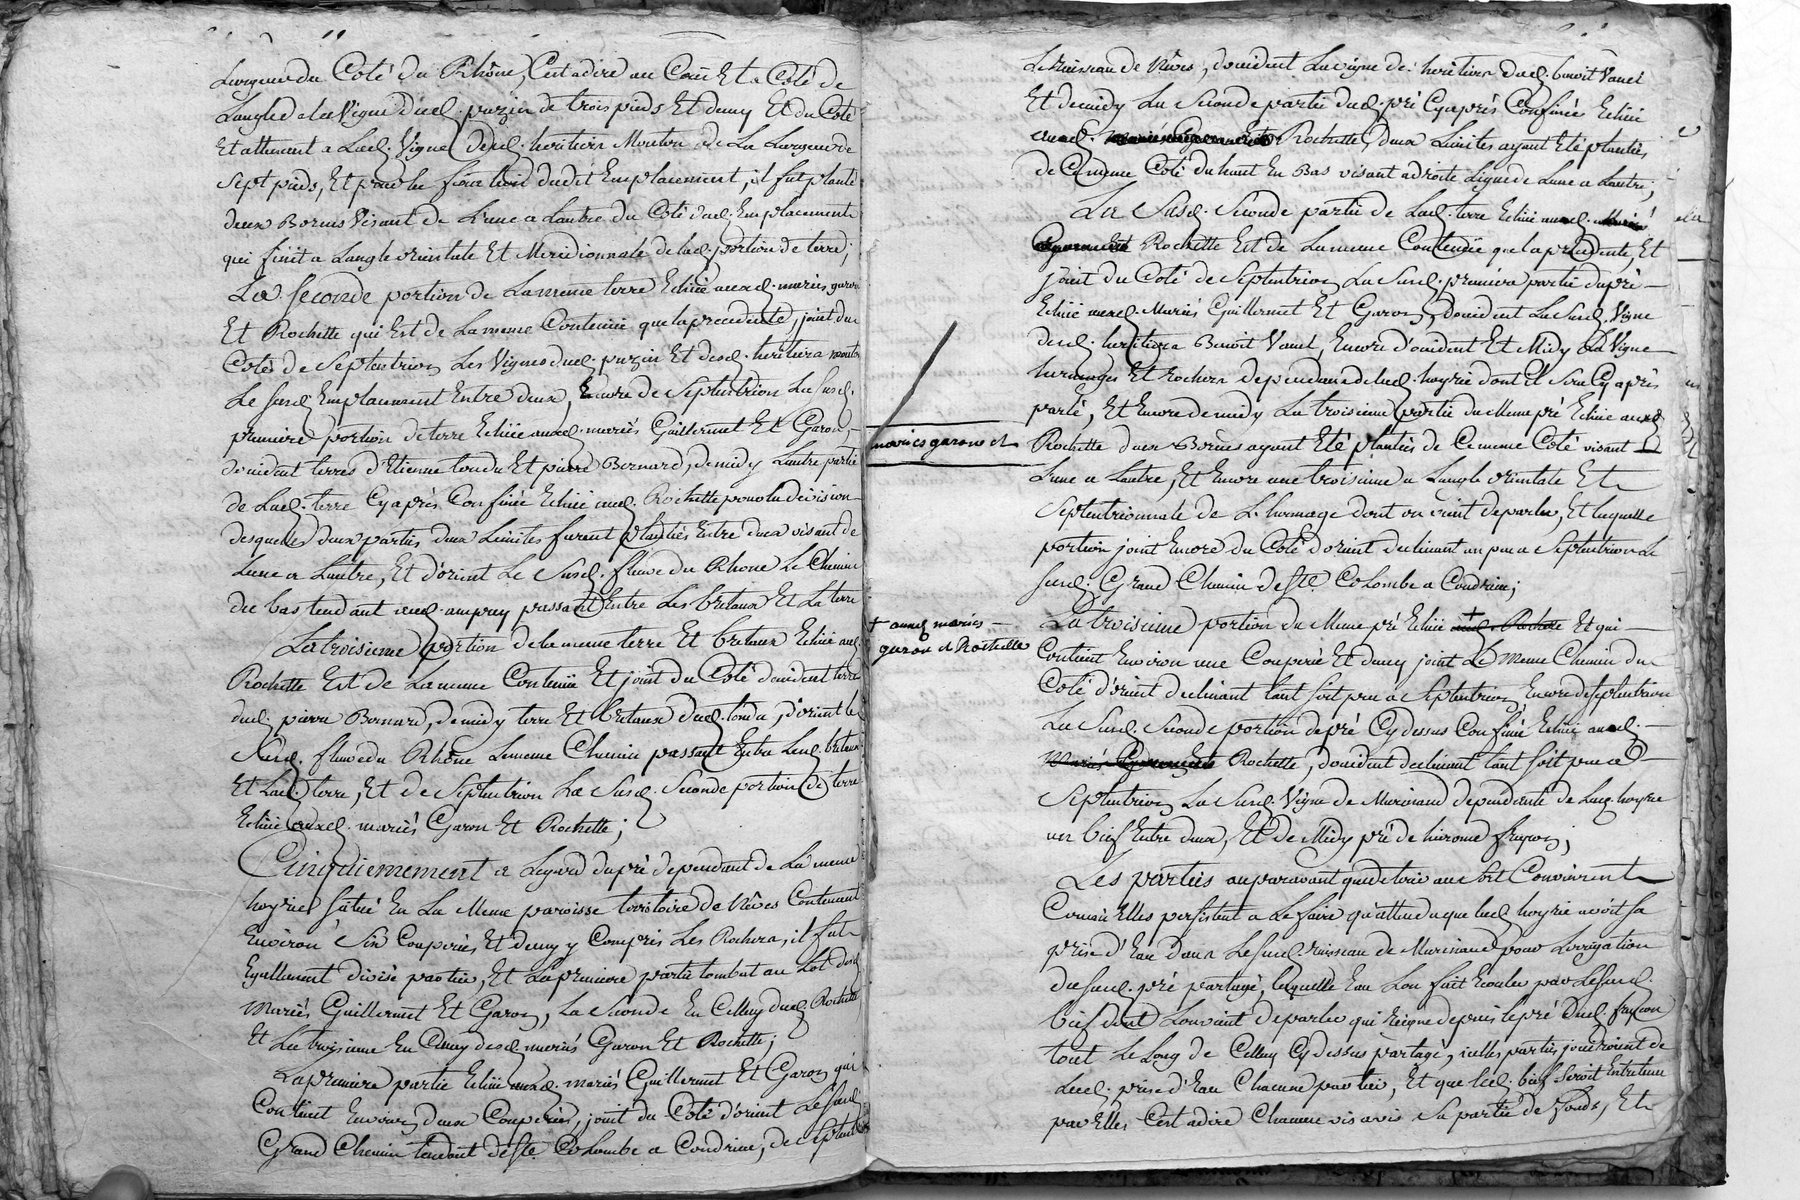 Largeur du Coté du Rhône, C'est adire au Coin Et a Coté de
Langle de la Vigne dud. puzin de trois pieds Et demy Et du Coté
Et attenant a Lad. Vigne desd. heritiers Mouton de La Largeur de
Sept pieds, Et pour le fixer dudit Emplacement, il fut planté
deux Bornes Visant de L'une a Lautre du Coté dud. Emplacement
qui finit a Langle orientale Et Meridionnale de lad. portion de terre;
La Seconde portion de La meme terre Echüe auxd. mariés garon
Et Rochette qui Est de La meme Contenüe que la precedente, joint du
Cotés de Septentrion Les Vignes dud. puzin Et desd. heritiers mouton
Le susd. Emplacement Entre deux, Encore de Septentrion La susd.
premiere portion de terre Echüe auxd. mariés Guillermet Et Garon,
doccident terres d'Etienne tondu Et pierre Bernard, de midy Lautre partie
de Lad. terre Cy après Confinée Echüe aud. Rochette pour la division
desquelles deux parties deux Limites furent plantées Entre deux visant de
Lune a Lautre, Et d'orient Le Susd. fleuve du Rhone Le Chemin
du bas tendant aud. ampuy passant Entre Les broteaux Et La terre
La troisieme portion de la meme terre Et broteaux Echüe aud.
Rochette Est de La meme Contenüe Et joint du Coté doccident terre
dud. pierre Bernard, de midy terre Et broteaux dud. tondu, d'orient le
Susd. fleuve du Rhône Le meme Chemin passant Entre Lesd. broteaux
Et Lad. terre, Et de Septentrion La Susd. Seconde portion de terre
Echüe auxd. mariés Garon Et Rochette;
Cinquiemement a Legard du pré dependant de La meme
hoyrie situé En La Meme paroisse territoire de Nêves Contenant
Environ Six Couperées Et demy y Compris Les Rochers, il fut
Egallement divisé par tier, Et La premiere partie tombat au Lot desd.
Mariés Guillermet Et Garon, La Seconde En Celluy dud. Rochette
Et La troisieme En Celluy desd. mariés Garon Et Rochette;
La premiere partie Echüe auxd. mariés Guillermet Et Garon qui
Contient Environ deux Couperées, joint du Coté d'orient Le susd.
Grand Chemin tendant de Ste. Colombe a Condrieu, de Septentrion
Le Ruisseau de Nêves, doccident La vigne des heritiers dud. benoit Vanel
Et de midy La Seconde partie dud. pré Cy après Confinée Echüe
aud. Rochette, deux Limites ayant Eté plantées
de Ce meme Coté du haut En Bas visant a droite Ligne de Lune a Lautre;
La Susd. Seconde partie de Lad. terre Echüe aud.
Rochette Est de La meme Contenüe que la precedente, Et
joint du Coté de Septentrion La Susd. premiere partie du pré
Echüe auxd. Mariés Guillermet Et Garon, doccident La Susd. Vigne
desd. heritiers Benoit Vanel, Encore d'occident Et Midy La Vigne
hermages Et Rochers dependant de lad. hoyrie dont il Sera Cy après
parlé, Et Encore de midy La troisieme partie du Meme pré Echüe auxd.
mariés garon et
Rochette deux Bornes ayant Eté plantées de Ce meme Coté visant
Lune a Lautre, Et Encore une troisieme a Langle orientale Et
Septentrionnale de L'hermage dont on vient de parler, Et laquelle
portion joint Encore du Coté d'orient declinant un peu a Septentrion Le
susd. Grand Chemin de Ste. Colombe a Condrieu;
+ auxd. mariés
garon et Rochette
La troisieme portion du Meme pré Echüe + aud. Rochette Et qui
Contient Environ une Couperée Et demy joint Le Meme Chemin du
Coté d'orient declinant tant soit peu a Septentrion, Encore de Septentrion
La Susd. Seconde portion de pré Cy dessus Confinée Echüe aud.
Rochette, doccident declinant tant soit peu a
Septentrion La Susd. Vigne de Murinaud dependante de Lad. hoyrie
un bief Entre deux, Et de Midy pré de hierome freyron;
Les parties auparavant que de tirer au sort Convinrent
Comme Elles persistent a Le faire qu'attendu que lad. hoyrie avoit sa
prise d'Eau dans Le susd. ruisseau de Murinaud pour Lirrigation
du susd. pré partagé, laquelle Eau Lon fait Ecouler par Le susd.
bief dont Lon vient de parler qui Regne depuis le pré dud. freyron
tout Le Long de Celluy Cy dessus partagé, icelles parties jouiroient de
Lad. prise d'Eau Chacune par tier, Et que led. bief Seroit Entretenu
par Elles C'est adire Chacune vis avis Sa partie de fonds, Et